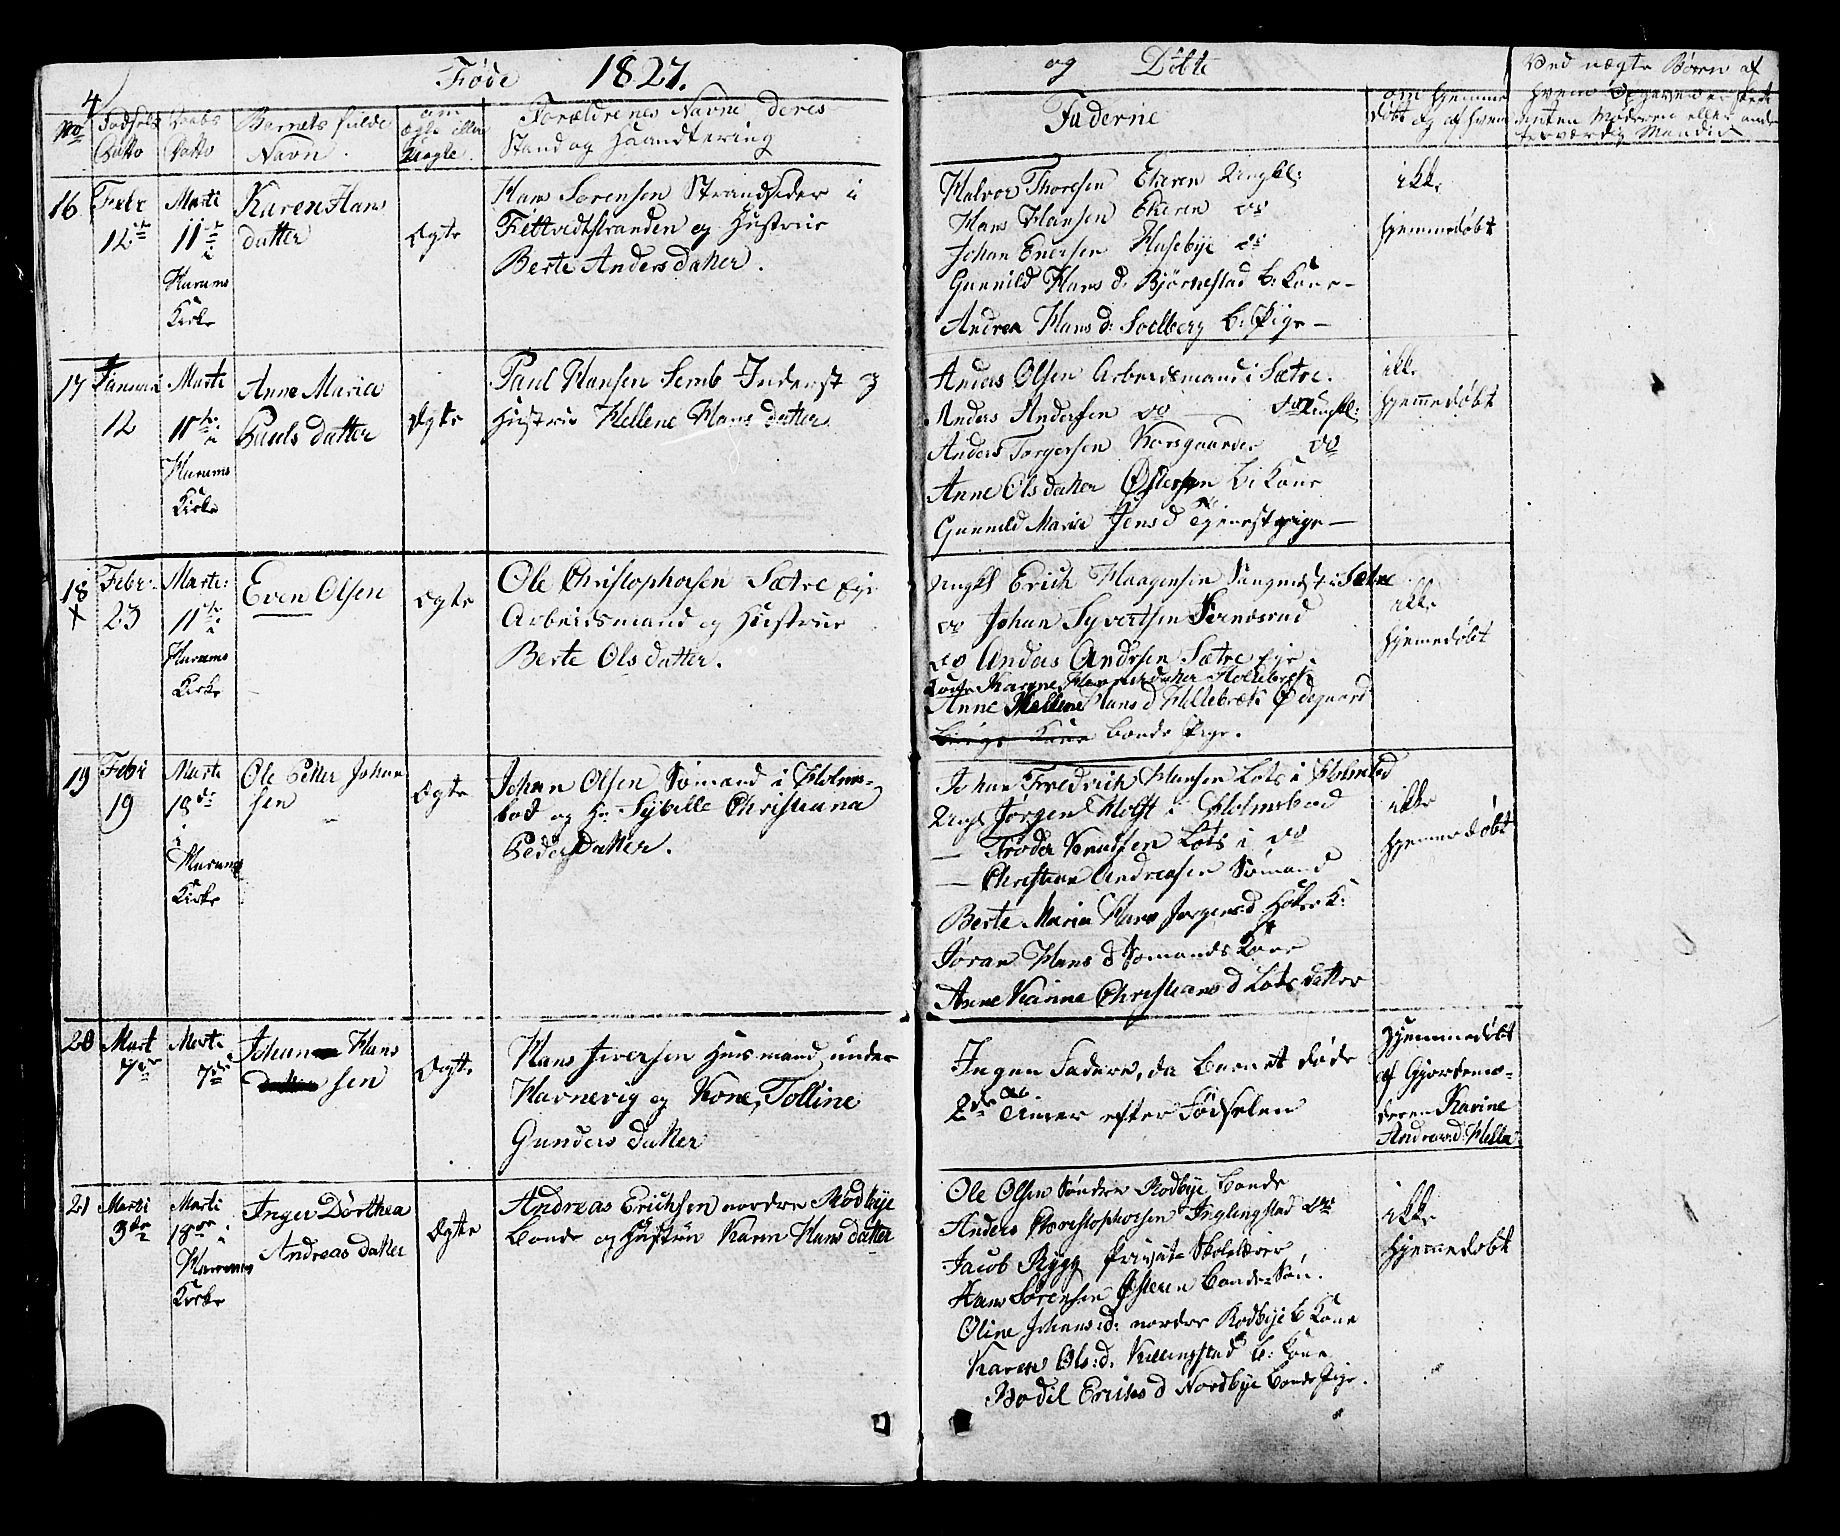 4
Føde 1827. og Døbte
No
Fødsels Datto
Daabs Datto
Barnets fulde Navn.
om Ægte eller Uægte.
Forældrenes Navne deres
Stand og Haandtering
Faderne
om Hjemme
døbt og af hvem
Ved uægte Børn af
hvem Opgivelsen er skedt
enten Moderen eller andre
troværdig Mænd
16
Febr
12te
Marti
11te
i
Hurums
Kirke
Karen Hans
datter
Ægte
Hans Sørensen Strandsider i
Filtvedtstranden og Hustrue
Berte Andersdatter.
Halvor Thoresen Ekeren Ungkl:
Hans Hansen Ekeren do
Johan Enersen Husebye do
Gunnild Hans d. Bjørnestad b: Kone –
Andrea Hans d: Soelberg b: Pige –
ikke
hjemmedøbt
17
Januari
12
Marti
11te
i
Hurums
Kirke
Anne Maria
Pauls datter
Ægte
Paul Hansen Semb Inderst og
Hustrue Hellene Hans datter
Anders Olsen Arbeidsmand i Sætre.
Anders Andersen do — do Ungkl:
Anders Torgersen Korsgaarden do
Anne Olsdatter Østerøen b: Kone
Gunnild Maria Jens d Tjenestpige –
ikke
hjemmedøbt
18
x
Febr:
23
Marti:
11te
i
Hurums
Kirke
Even Olsen
Ægte
Ole Christophersen Sætre Eje
Arbeidsmand og Hustrue
Berte Olsdatter.
Ungkl Erich Haagensen Sætre
do Johan Syvertsen
do Anders Andersen Sætre Eje.
Anne Hellene Hans d Hillebrek Ødegaard
Kone Bonde Pige.
ikke
hjemedøbt
19
Febr
19
Marti
18de
i
Hurums
Kirke
Ole Petter Johan
sen
Ægte
Johan Olsen Sømand i Holms-
bod og H: Sybille Christiana
Pedersdatter.
Johan Fredrich Hansen Lots i Holmsbod
Ungk Jørgen Holst i Holmsboed
— Frøder Knudsen Lots i do
— Christian Andreasen Sømand
Berte Maria Hans Jørgensd. Høker K:
Jøran Hans d Sømands Kone
Anne Karine Christians d Lots datter
ikke
hjemmedøbt
20
Mart
7de
Marti
7de
Johan Hans
sen
Ægte
Hans Iversen Huusmand under
Havnevig og Kone, Tolline
Gunders datter
Ingen Faderne, da Barnet døde
2de Timer efter Fødselen
Hjemmedøbt
af Gjordemo-
deren Karine
Andreasd: Hella
21
Marti
3de
Marti
18de i
Hurums
Kirke
Inger Dorthea
Andreas datter
Ægte
Andreas Erichsen nordre Rødbye
Bonde og Hustrue Karen Hans datter
Ole Olsen Søndre Rødbye Bonde
Anders Christophersen Inglingstad do
Jacob Rygg Privat-Skolelærer
Hans Sørensen Østeren Bonde-Søn.
Oline Johans d: nordre Rødbye b Kone
Karen Ols: d. Killingstad b: Kone
Bodil Erichs d Nordbye Bonde Pige.
ikke
hjemmedøbt